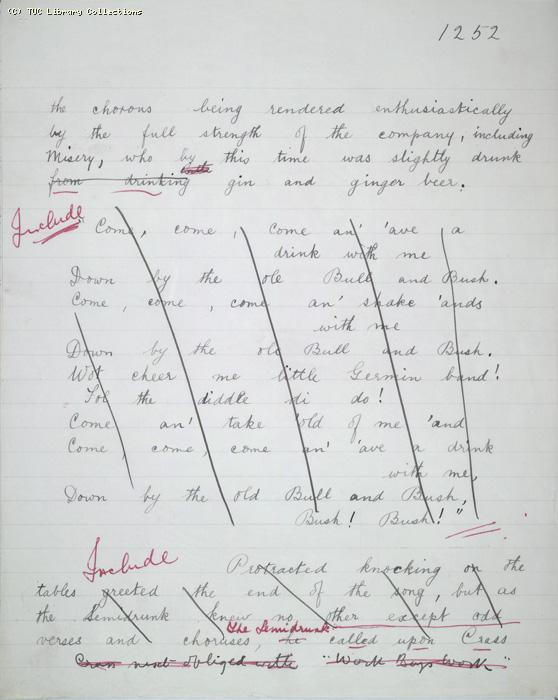 (C) TUC Library Collections
1252
the chorous being rendered enthusiastically
by the full strength of the company, including
Misery, who by this time was slightly drunk
from drinking gin and ginger beer.
Include
"Come, come, come an' 'ave a
drink with me
Down by the ole Bull and Bush.
Come, come, come an' shake 'ands
with me
Down by the ole Bull and Bush.
Wot cheer me little Germin band!
Fol the diddle di do!
Come an' take 'old of me 'and
Come, come, come an' 'ave a drink
with me,
Down by the old Bull and Bush,
Bush! Bush!"
Include
Protracted knocking on the
tables greeted the end of the song, but as
the Semidrunk knew no other except odd
the Semidrunk
verses and choruses, he called upon Crass
Crass next obliged with "Work Boys Work"